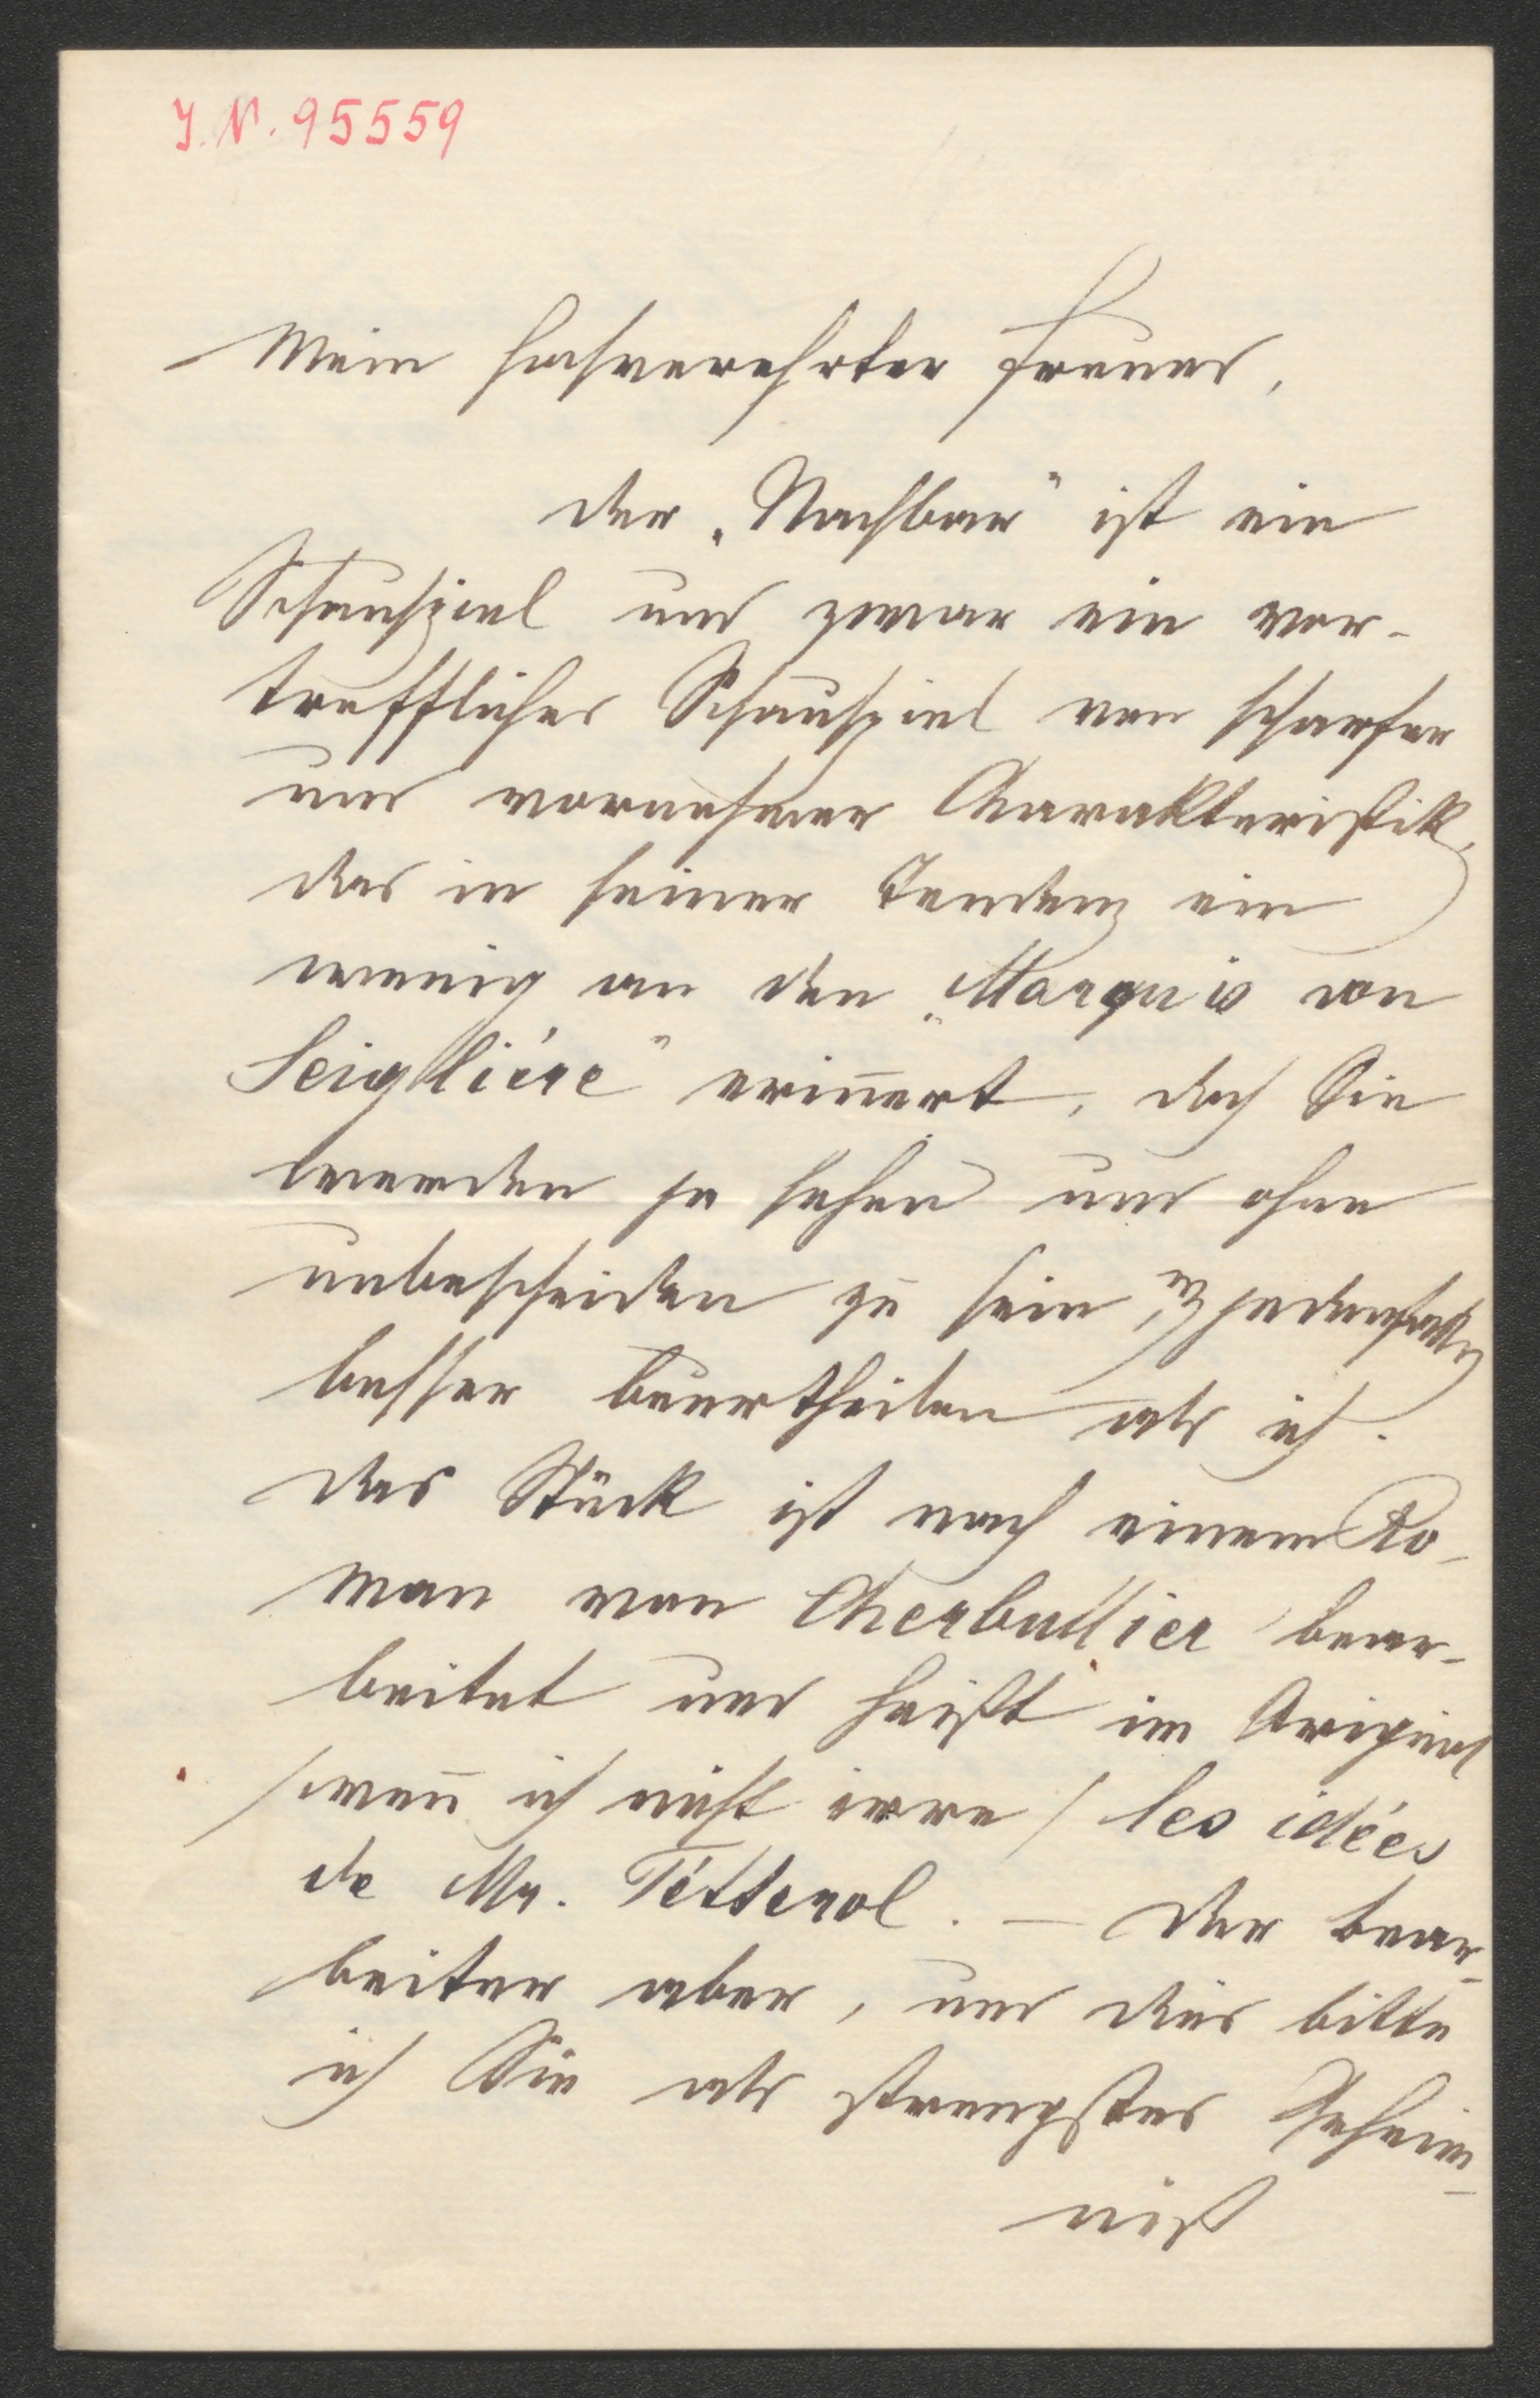 J. N. 95559
Mein hochverehrter Freund,
der „Nachbar" ist ein
Schauspiel und zwar ein vor-
treffliches Schauspiel von scharfer
und vornehmer Charakteristik,
das in seiner Tendenz ein
wenig an den „Marquis von
Seiglliére" erin̄ert, doch Sie
werden ja sehen und ohne
unbescheiden zu sein, es jedenfalls
besser beurtheilen als ich.
Das Stück ist nach einem Ro-
man von Cherbullier bear-
beitet und heißt im Original
/wen̄ ich nicht irre/ les idées
de Mr. Tétterol. – Der Bear-
beiter aber, und dies bitte
ich Sie als strengstes Geheim-
niß